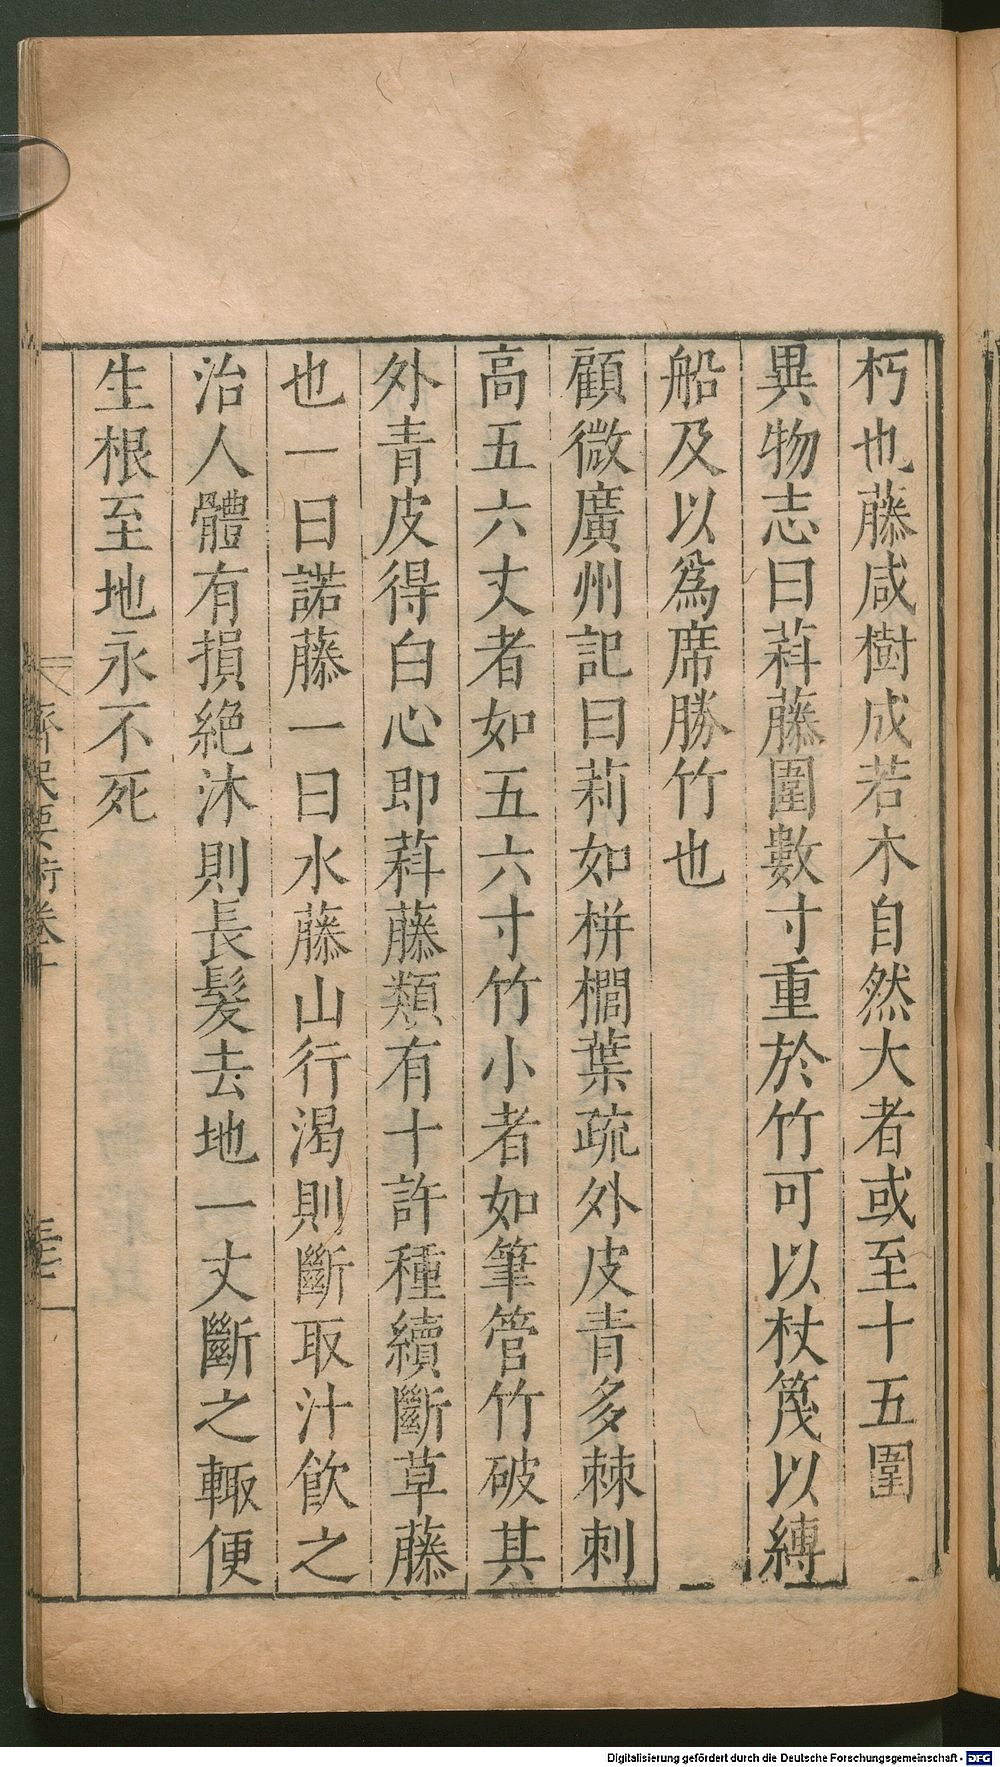 朽也藤咸樹成若木自然大者或至十五圍
異物志曰萪藤圍數寸重於竹可以杖篾以縛
船及以爲席勝竹也
顧微廣州記曰莉如栟櫚葉疏外皮青多棘刺
高五六丈者如五六寸竹小者如筆管竹破其
外青皮得白心即萪藤類有十許種續斷草藤
也一曰諾藤一曰水藤山行渴則斷取汁飲之
治人體有損絕沐則長髮去地一丈斷之輙便
生根至地永不死
齊民要術卷十
Digitalisierung gefördert durch die Deutsche Forschungsgemeinschaft - DFG